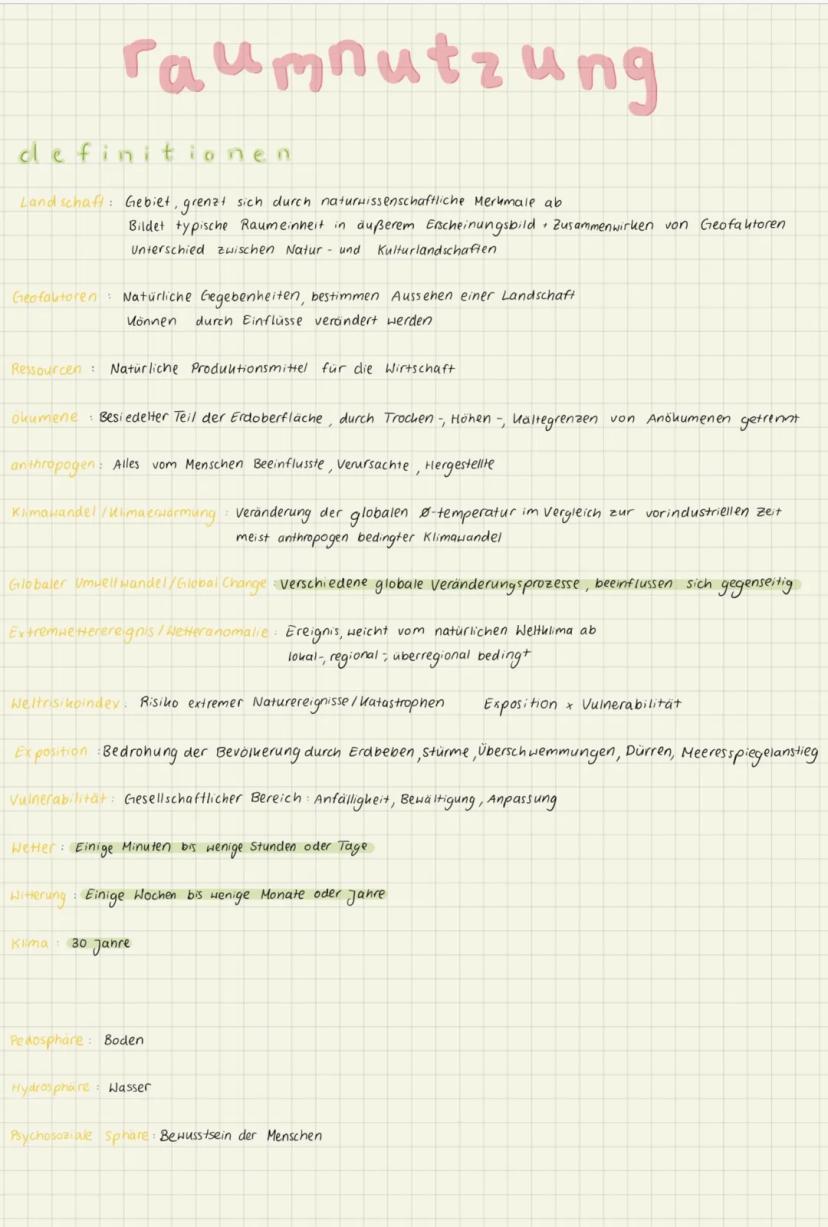 raumnutzung
definitionen
Landschaft: Gebiet, grenzt sich durch naturwissenschaftliche Merkmale ab
Bildet typische Raumeinheit in äußerem Erscheinungsbild + Zusammenwirken von Geofaktoren
Unterschied zwischen Natur- und Kulturlandschaften
Geofaktoren: Natürliche Gegebenheiten, bestimmen Aussehen einer Landschaft
Können durch Einflüsse verändert werden
Ressourcen: Natürliche Produktionsmittel für die Wirtschaft
ökumene: Besiedelter Teil der Erdoberfläche, durch Trocken-, Höhen-, Kältegrenzen von Anökumenen getrennt
anthropogen: Alles vom Menschen Beeinflusste, Verursachte, Hergestellte
Klimawandel/Klimaerwärmung: Veränderung der globalen Ø-temperatur im Vergleich zur vorindustriellen Zeit
meist anthropogen bedingter Klimawandel
Globaler Umweltwandel/Global Change: Verschiedene globale Veränderungsprozesse, beeinflussen sich gegenseitig
Extremwetterereignis/Wetteranomalie: Ereignis, weicht vom natürlichen Weltklima ab
lokal-, regional-, überregional bedingt
Weltrisikoindex: Risiko extremer Naturereignisse/Katastrophen Exposition x Vulnerabilität
Exposition: Bedrohung der Bevölkerung durch Erdbeben, Stürme, Überschwemmungen, Dürren, Meeresspiegelanstieg
Vulnerabilität: Gesellschaftlicher Bereich: Anfälligkeit, Bewältigung, Anpassung
Wetter: Einige Minuten bis wenige Stunden oder Tage
Witterung: Einige Wochen bis wenige Monate oder Jahre
Klima: 30 Jahre
Pedosphäre: Boden
Hydrosphäre: Wasser
Psychosoziale Sphäre: Bewusstsein der Menschen